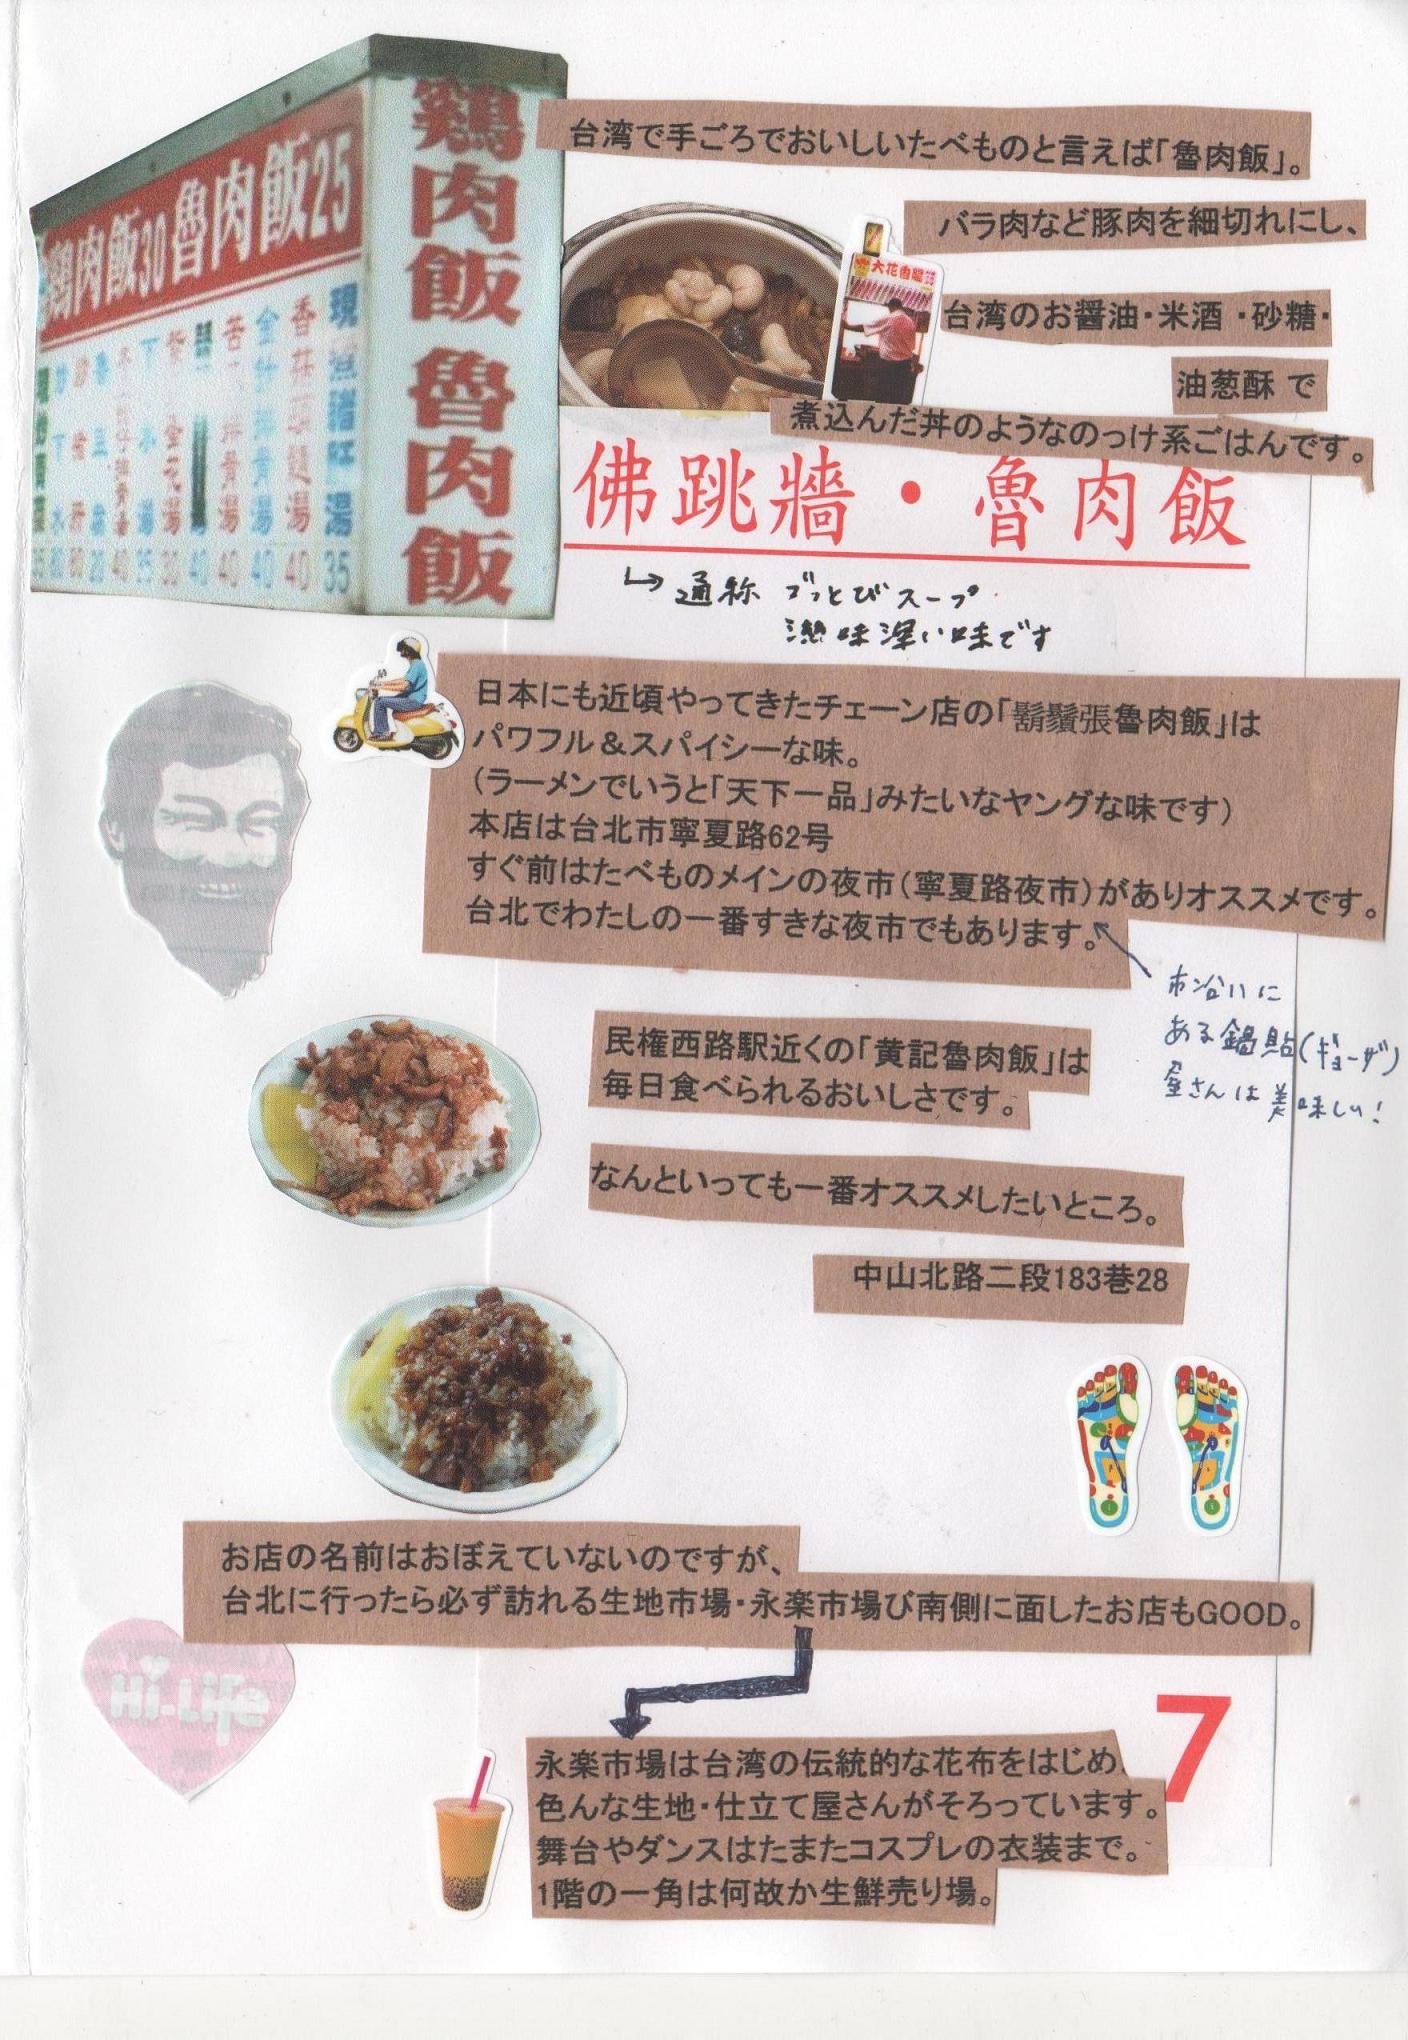 鶏肉飯30魯肉飯25
鶏肉飯 魯肉飯
現
湯
35
香菇
湯
40
金針排骨湯
40
苦
排骨湯
40
40
30
下水湯
35
40
20
80
台湾で手ごろでおいしいたべものと言えば「魯肉飯」。
バラ肉など豚肉を細切れにし、
大花香腸
台湾のお醤油・米酒・砂糖・
油葱酥 で
煮込んだ丼のようなのっけ系ごはんです。
佛跳牆・魯肉飯
通称 ブっとびスープ
滋味深い味です
日本にも近頃やってきたチェーン店の「鬍鬚張魯肉飯」は
パワフル＆スパイシーな味。
（ラーメンでいうと「天下一品」みたいなヤングな味です）
本店は台北市寧夏路62号
すぐ前はたべものメインの夜市（寧夏路夜市）がありオススメです。
台北でわたしの一番すきな夜市でもあります。
市沿いに
ある鍋貼(ギョーザ)
屋さんは美味しい!
民権西路駅近くの「黄記魯肉飯」は
毎日食べられるおいしさです。
なんといっても一番オススメしたいところ。
中山北路二段183巷28
お店の名前はおぼえていないのですが、
台北に行ったら必ず訪れる生地市場・永楽市場び南側に面したお店もGOOD。
Hi-Life
永楽市場は台湾の伝統的な花布をはじめ、
色んな生地・仕立て屋さんがそろっています。
舞台やダンスはたまたコスプレの衣装まで。
1階の一角は何故か生鮮売り場。
7